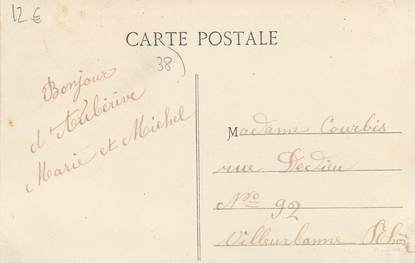 12 €
CARTE POSTALE
38
Bonjour
d'Aubérive
Marie et Michel
Madame Courbis
rue Dedieu
No 92
Villeurbanne Rhône